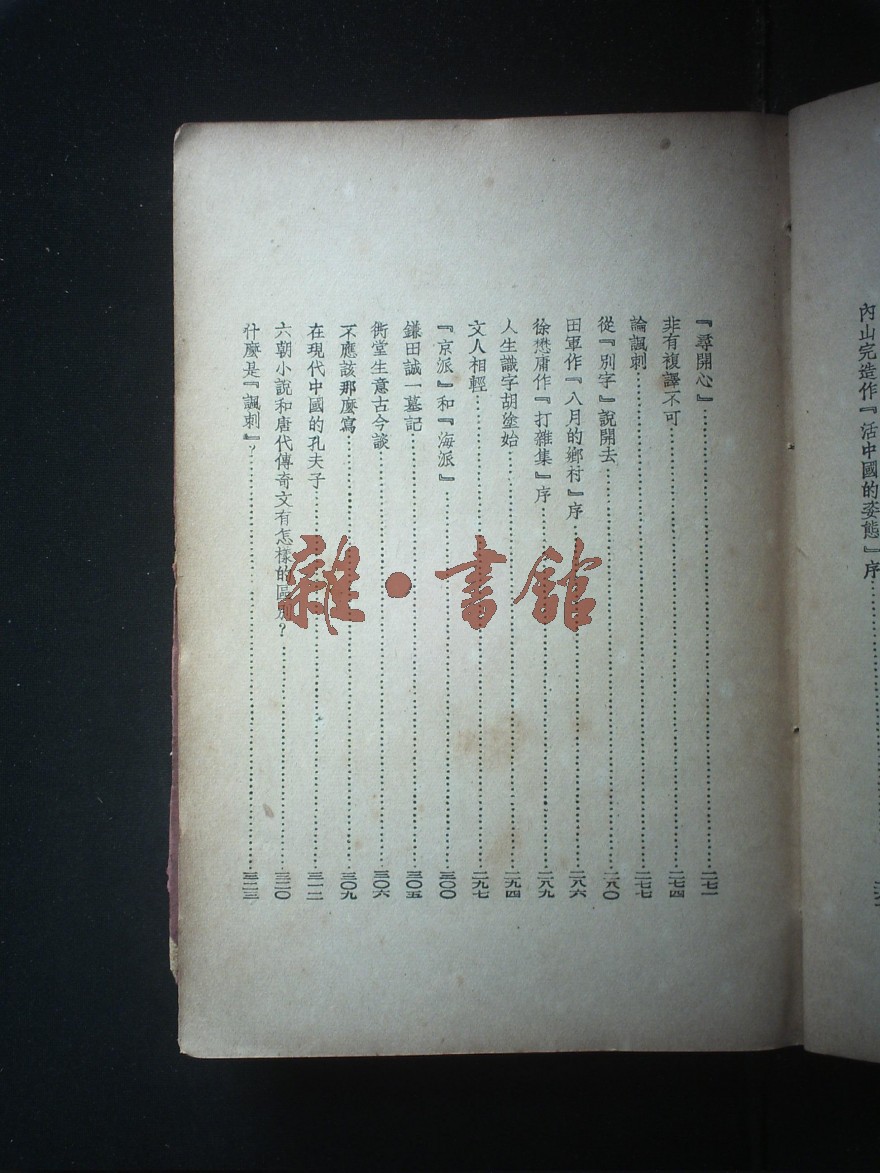 內山完造作『活中國的姿態』序
『尋開心』……二七一
非有複譯不可……二七四
論諷刺……二七七
從『別字』說開去……二八〇
田軍作『八月的鄉村』序……二八六
徐懋庸作『打雜集』序……二八九
人生識字胡塗始……二九四
文人相輕……二九七
『京派』和『海派』……三〇〇
鎌田誠一墓記……三〇五
衖堂生意古今談……三〇六
不應該那麼寫……三〇九
在現代中國的孔夫子……三一二
六朝小說和唐代傳奇文有怎樣的區別？……三二〇
什麼是『諷刺』？……三二三
雜·書館